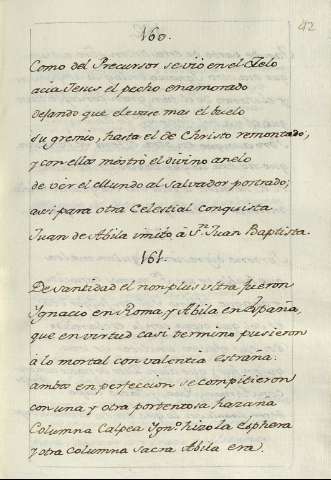 42
160.
Como del Precursor se vió en el Zelo
acia Jesus el pecho enamorado
desando que elevase mas el buelo
su gremio, hasta el de Christo remontado,
y con ellos mostró el divino anelo
de ver el Mundo al Salvador postrado;
assi para otra Celestial conquista
Juan de Abila imitó, a Sn. Juan Baptista.
161.
De santidad el non plus ultra fueron
Ygnacio en Roma, y Abila en España,
que en virtud casi termino pusieron
à lo mortal con valentia estraña:
ambos en perfeccion se compitieron
con una y otra portentosa hazaña
Columna Calpea Ygno. hizo la Esphera
y otra Columna sacra Abila era.